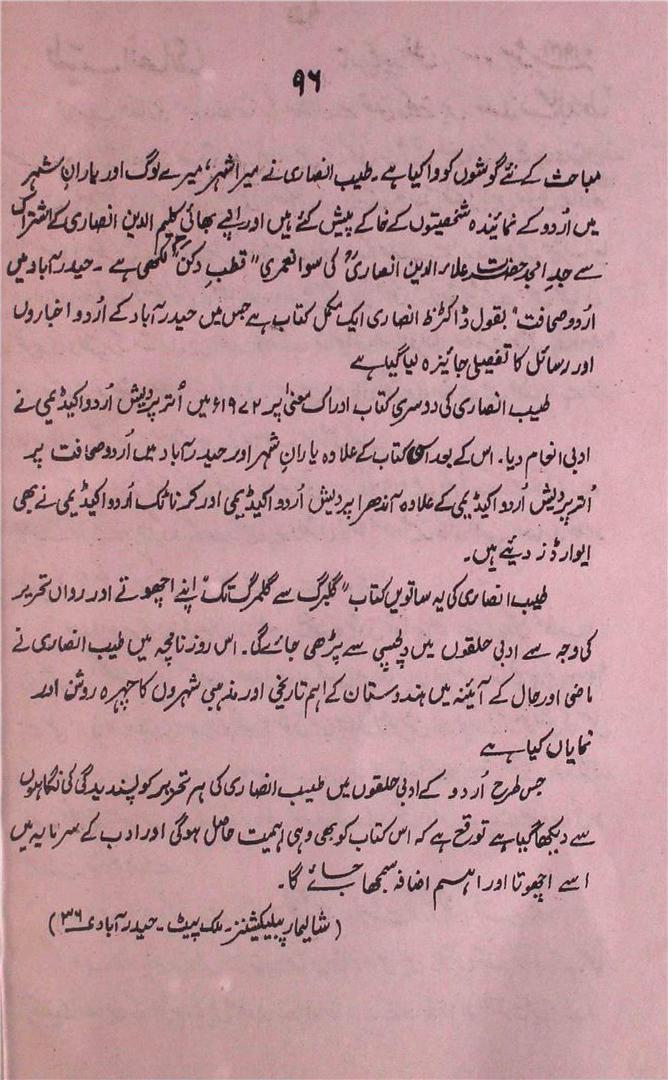 ۹۶
مباحث کے نئے گوشوں کو وا کیا ہے۔ طیب انصاری نے میرا شہر، میرے لوگ اور یارانِ شہر
میں اُردو کے نمائندہ شخصیتوں کے خاکے پیش کئے ہیں اور اپنے بھائی کلیم الدین انصاری کے اشتراک
سے جدِ امجد حضرت علاء الدین انصاریؒ کی سوانعمری "قطبِ دکن" لکھی ہے ۔ حیدرآباد میں
اردو صحافت" بقول ڈاکٹر ط انصاری ایک مکمل کتاب ہے جس میں حیدرآباد کے اُردو اخباروں
اور رسائل کا تفصیلی جائزہ لیا گیا ہے
طیب انصاری کی دوسری کتاب ادراک معنیٰ پر ۱۹۷۲ء میں اُتر پردیش اُردو اکیڈیمی نے
ادبی انعام دیا۔ اس کے بعد اس کتاب کے علاوہ یارانِ شہر اور حیدرآباد میں اُردو صحافت پر
اُتر پردیش اُردو اکیڈیمی کے علاوہ آندھرا پردیش اُردو اکیڈیمی اور کرناٹک اُردو اکیڈیمی نے بھی
ایوارڈز دیئے ہیں۔
طیب انصاری کی یہ ساتویں کتاب "گلبرگ سے گلمرگ تک" اپنے اچھوتے اور رواں تحریر
کی وجہ سے ادبی حلقوں میں دلچسپی سے پڑھی جائے گا۔ اس روزنامچہ میں طیب انصاری نے
ماضی اور حال کے آئینہ میں ہندوستان کے اہم تاریخی اور مذہبی شہروں کا چہرہ روشن اور
نمایاں کیا ہے
جس طرح اُردو کے ادبی حلقوں میں طیب انصاری کی ہر تحریر کو پسندیدگی کی نگاہوں
سے دیکھا گیا ہے توقع ہے کہ اس کتاب کو بھی وہی اہمیت حاصل ہوگی اور ادب کے سرمایہ میں
اسے اچھوتا اور اہم اضافہ سمجھا جائے گا۔
(شالیمار پبلیکیشنز۔ ملک پیٹ۔ حیدرآباد ۳۶)